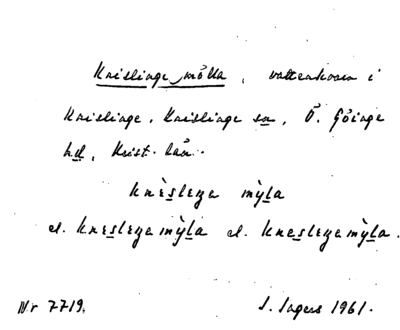 Knislinge mölla, vattenkvarn i
Knislinge, Knislinge sn, Ö. Göinge
hd, Krist. län.
knèslɛŋa mỳla
el. knɛslɛŋamỳla el. knɛslɛŋamỳla.
Nr 7719. S. Ingers 1961.